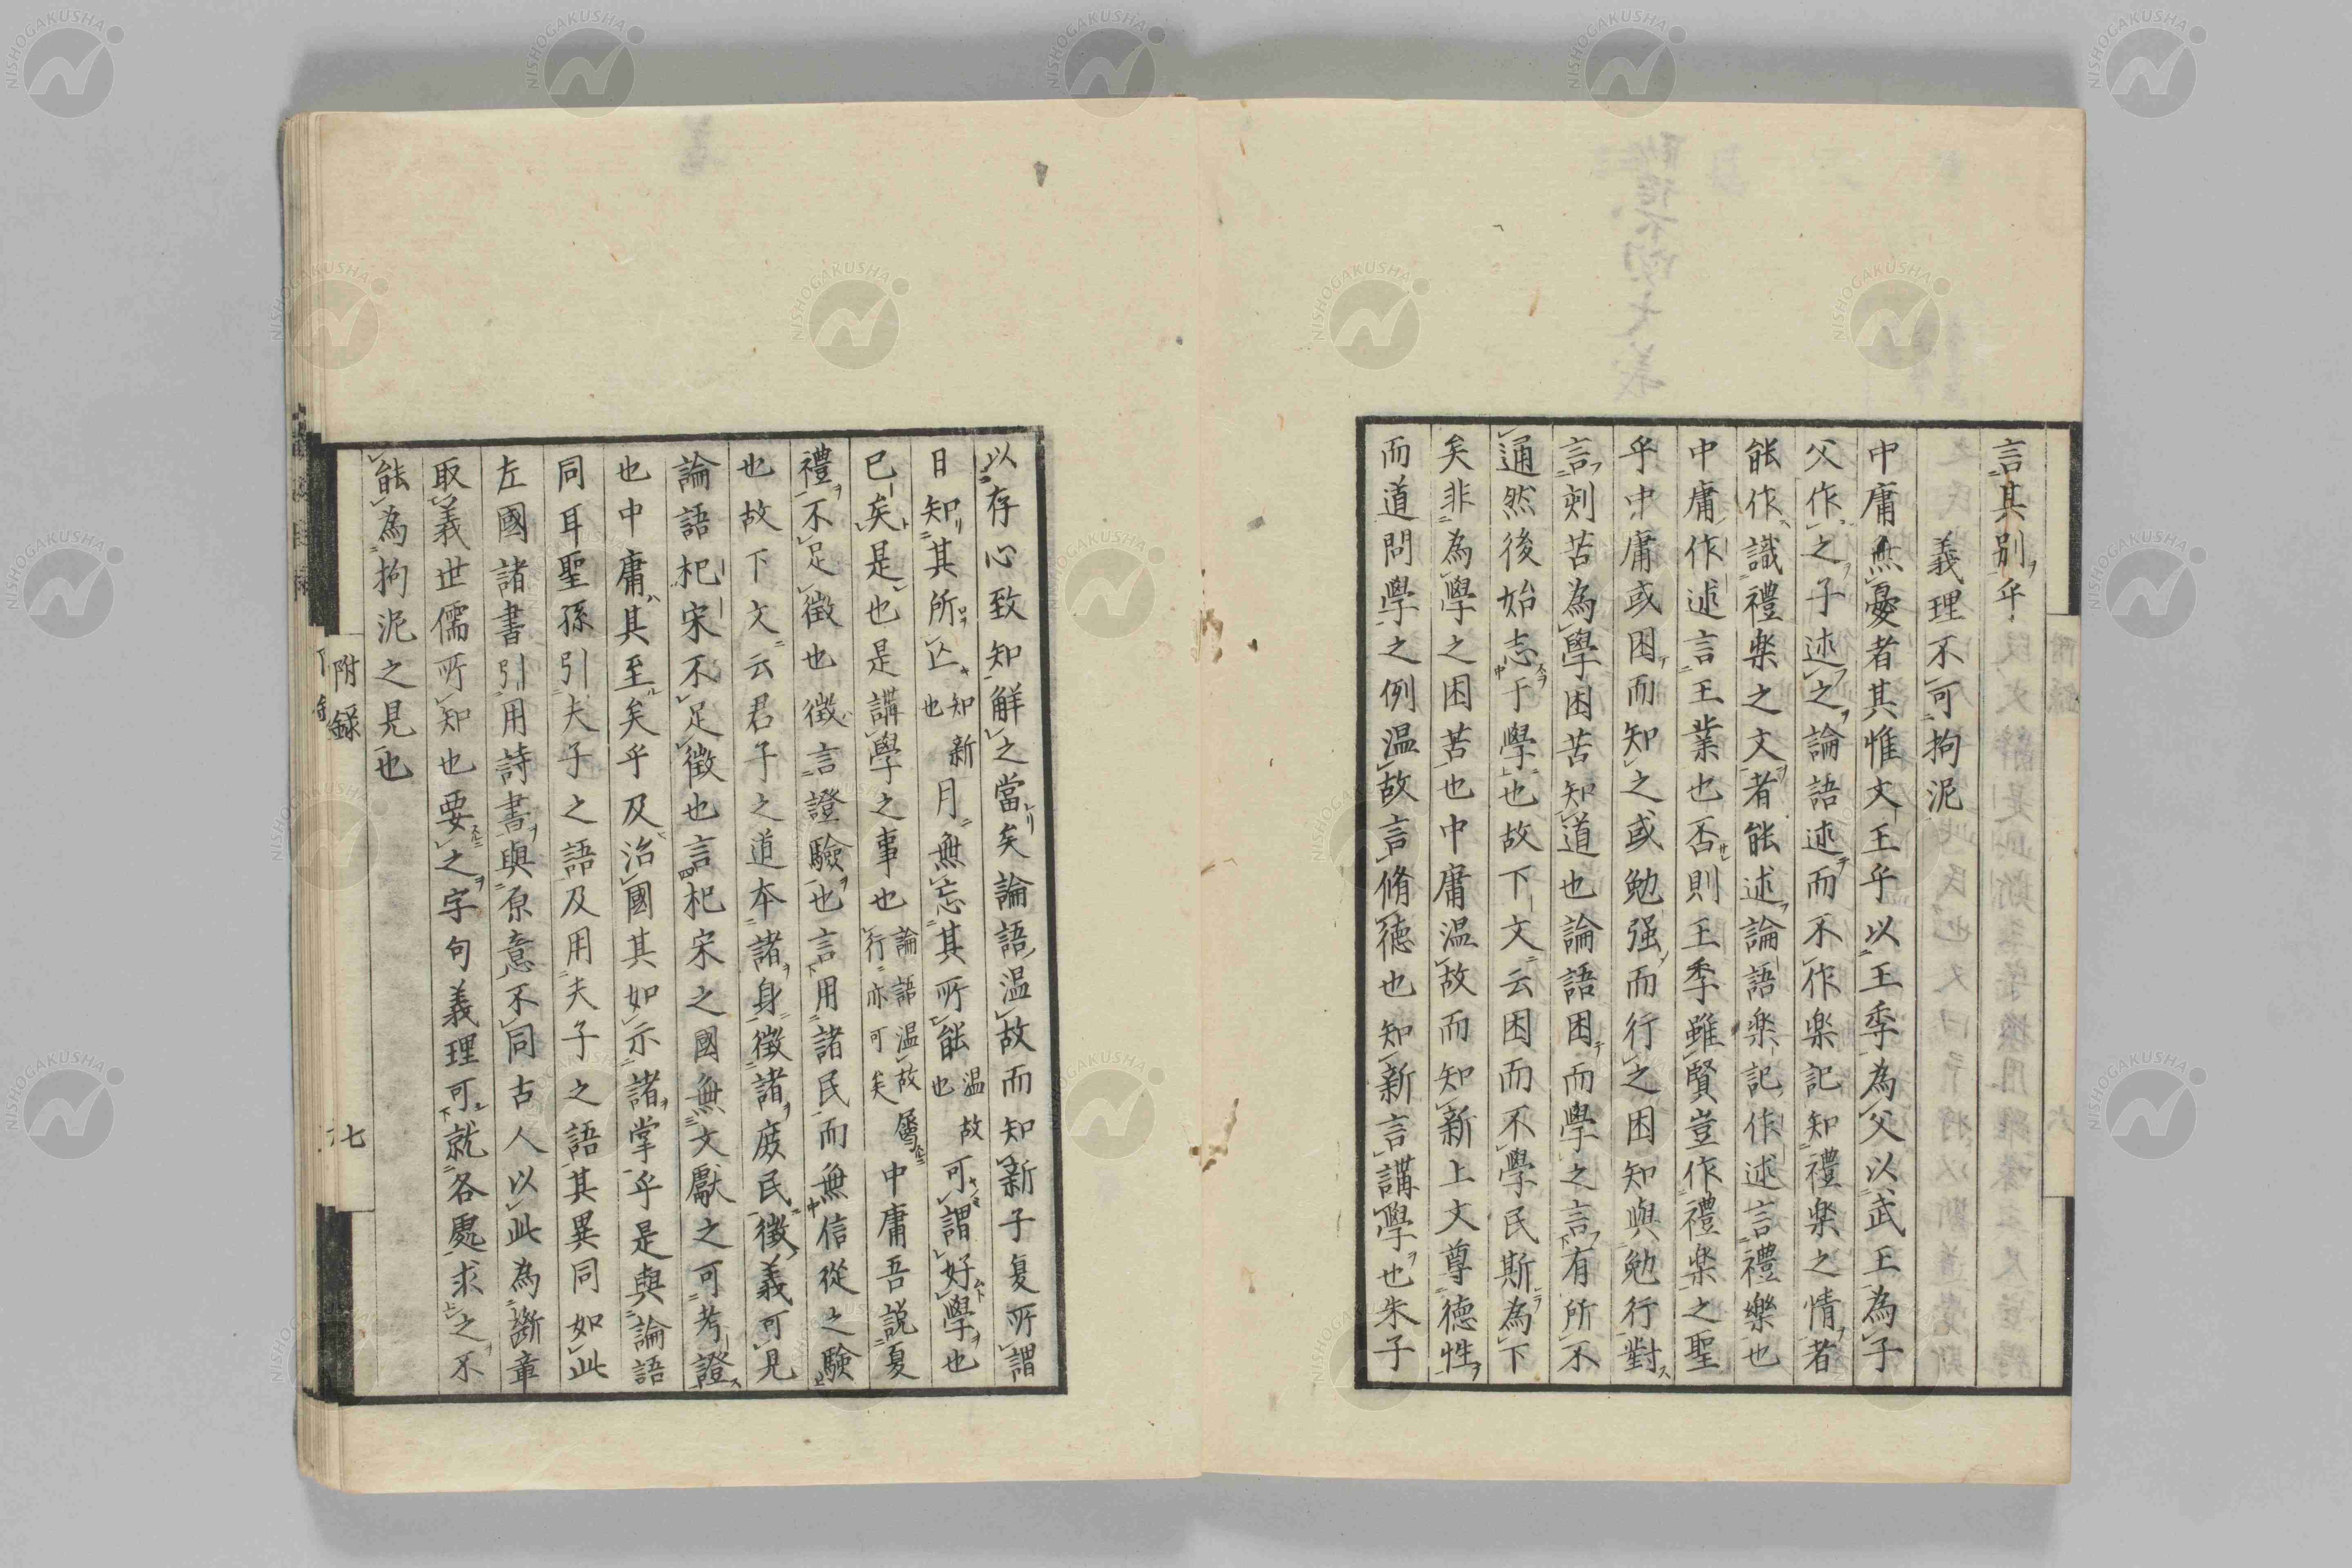 言其別乎
義理不可拘泥
中庸無憂者其惟文王乎以王季為父以武王為子
父作之子述之論語述而不作楽記知禮楽之情者
能作識禮楽之文者能述論語楽記作述言禮樂也
中庸作述言王業也否則王季雖賢豈作禮楽之聖
乎中庸或困而知之或勉强而行之困知與勉行對
言刻苦為學困苦知道也論語困而學之言有所不
通然後始志于學也故下文云困而不學民斯為下
矣非為學之困苦也中庸温故而知新上文尊德性
而道問學之例温故言脩德也知新言講學也朱子
以存心致知解之當矣論語温故而知新子夏所謂
日知其所亡知新也月無忘其所能温故也可謂好學也
已矣是也是講學之事也論語温故行亦可矣屬中庸吾説夏
禮不足徴也徴言證驗也言用諸民而無信從之驗
也故下文云君子之道本諸身徴諸庶民徴義可見
論語杞宋不足徴也言杞宋之國無文獻之可考證
也中庸其至矣乎及治國其如示諸掌乎是與論語
同耳聖孫引夫子之語及用夫子之語其異同如此
左國諸書引用詩書與原意不同古人以此為斷章
取義世儒所知也要之字句義理可就各處求之不
能為拘泥之見也
附録
七
NISHOGAKUSHA